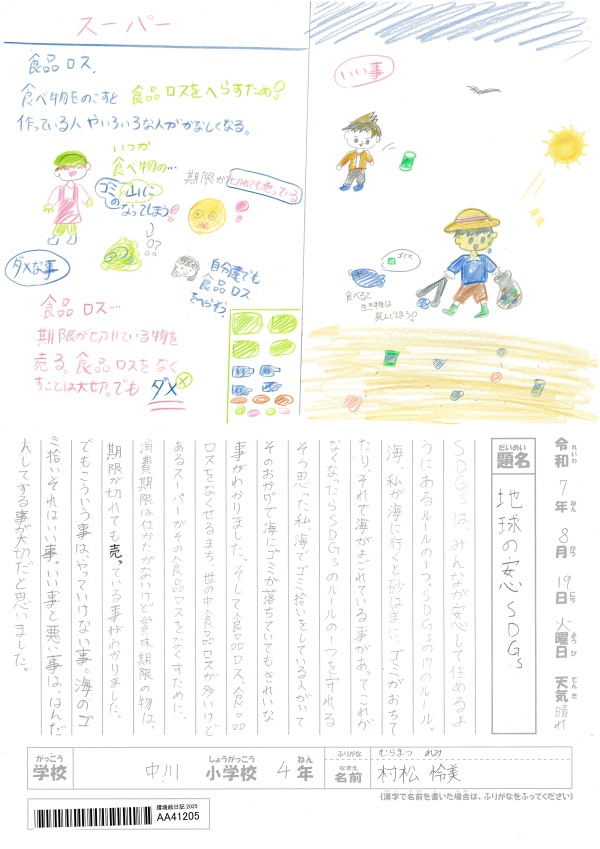 スーパー
食品ロス、
食べ物をのこすと
作っている人やいろいろな人がかなしくなる。
食品ロスをへらすため!
いつか
食べ物の…
ゴミ山に
のなってしまう
期限が切れても売っている
自分達でも
食品ロス
をへらす。
ダメな事
食品ロス…
期限が切れている物を
売る。食品ロスをなく
すことは大切。でもダメ
いい事
ゴミ
食べると
生き物は
死んでしまう!
令和7年8月19日火曜日 天気晴れ
れいわ ねん がつ にち ようび てんき
だいめい
題名
地球の安心SDGs
SDGsは、みんなが安心して住めるよ
うにあるルールの一つ。SDGsの17のルール。
海、私が海に行くと砂はまに、ゴミがおちて
たり、それで海がよごれている事があってこれが
なくなったらSDGsのルールの一つを守れる
そう思った私、海でゴミ拾いをしている人がいて
そのおかげで海にゴミが落ちていてもきれいな
事がわかりました。そして食品ロス、食品
ロスをなくせるまち、世の中食品ロスが多いけど
あるスーパーがその食品ロスをなくすために、
消費期限は仕かたがないけど賞味期限の物は、
期限が切れても売っている事がわかりました。
でもこういう事は、やっていけない事。海のゴ
ミ拾いそれはいい事。いい事と悪い事は、はんだ
んしてする事が大切だと思いました。
がっこう しょうがっこう ねん ふりがな むらまつ れみ
学校 中川 小学校 4年 なまえ 名前 村松 怜美
(漢字で名前を書いた場合は、ふりがなをふってください)
環境絵日記2025
AA41205